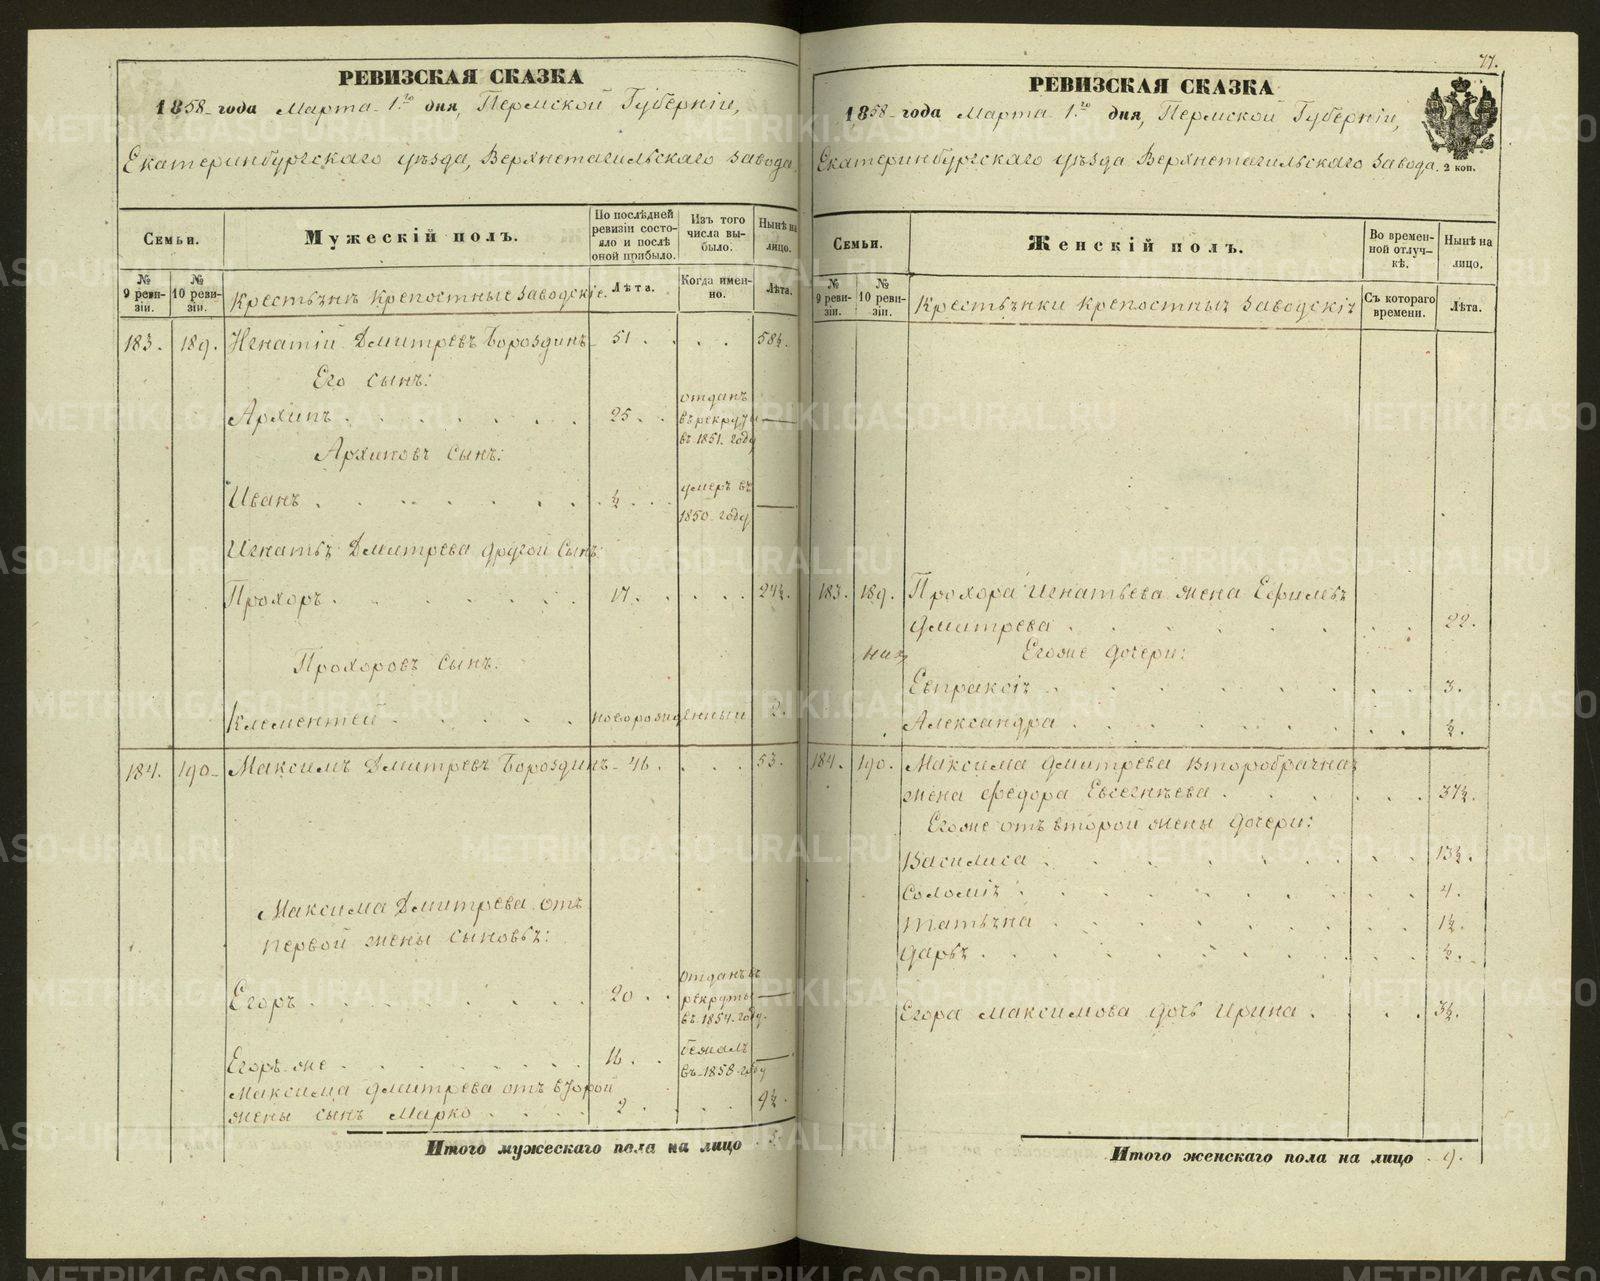 РЕВИЗСКАЯ СКАЗКА
1858 года Марта 1го дня, Пермской Губерніи,
Екатеринбургскаго уѣзда, Верхнетагильскаго завода
Семьи.
Мужескій полъ.
По послѣдней ревизіи состояло и послѣ оной прибыло.
Изъ того числа выбыло.
Нынѣ на лицо.
№ 9 ревизіи.
№ 10 ревизіи.
Крестьяне крепостные заводскіе.
Лѣта.
Когда именно.
Лѣта.
183. 189. Игнатій Дмитревъ Бороздинъ 51 . . . . 58½.
Его сынъ:
Архипъ 25 . . отданъ въ рекруты въ 1851. году —
Архиповъ сынъ:
Иванъ ½ умеръ въ 1850 году —
Игнатья Дмитрева другой сынъ:
Прохоръ 17. 24½.
Прохоровъ сынъ:
Клементей новорожденный 2.
184. 190 Максимъ Дмитревъ Бороздинъ 46 . . . . 53.
Максима Дмитрева отъ
первой жены сыновья:
Егоръ 20 . . отданъ въ рекруты въ 1854. году. —
Егоръ же 16 . . бежалъ въ 1858 году —
Максима Дмитрева отъ второй
жены сынъ Марко 2 9½.
Итого мужескаго пола на лицо
77.
РЕВИЗСКАЯ СКАЗКА
1858 года Марта 1го дня, Пермской Губерніи,
Екатеринбургскаго уѣзда Верхнетагильскаго завода.
2 коп.
Семьи.
Женскій полъ.
Во временной отлучкѣ.
Нынѣ на лицо.
№ 9 ревизіи.
№ 10 ревизіи.
Крестьянки крепостныя заводскія
Съ котораго времени.
Лѣта.
183. 189. Прохора Игнатьева жена Ефимья
Дмитрева 22.
Его же дочери:
Евпраксія 3.
Александра ½.
184. 190. Максима Дмитрева второбрачная
жена Федора Евсегнѣева 37½.
Его же отъ второй жены дочери:
Василиса 13½.
Соломія 4.
Татьяна 1½.
Дарья ½.
Егора Максимова дочь Ирина 3½.
Итого женскаго пола на лицо 9.
METRIKI.GASO-URAL.RU